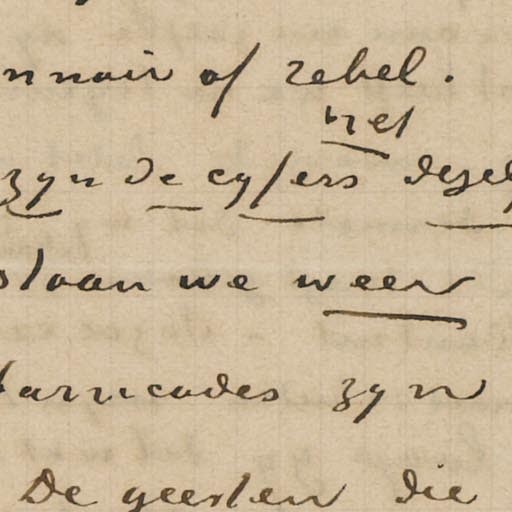 nnair of rebel.
net
zyn de cyfers dezel
slaan we weer
barricades zyn
De geesten die